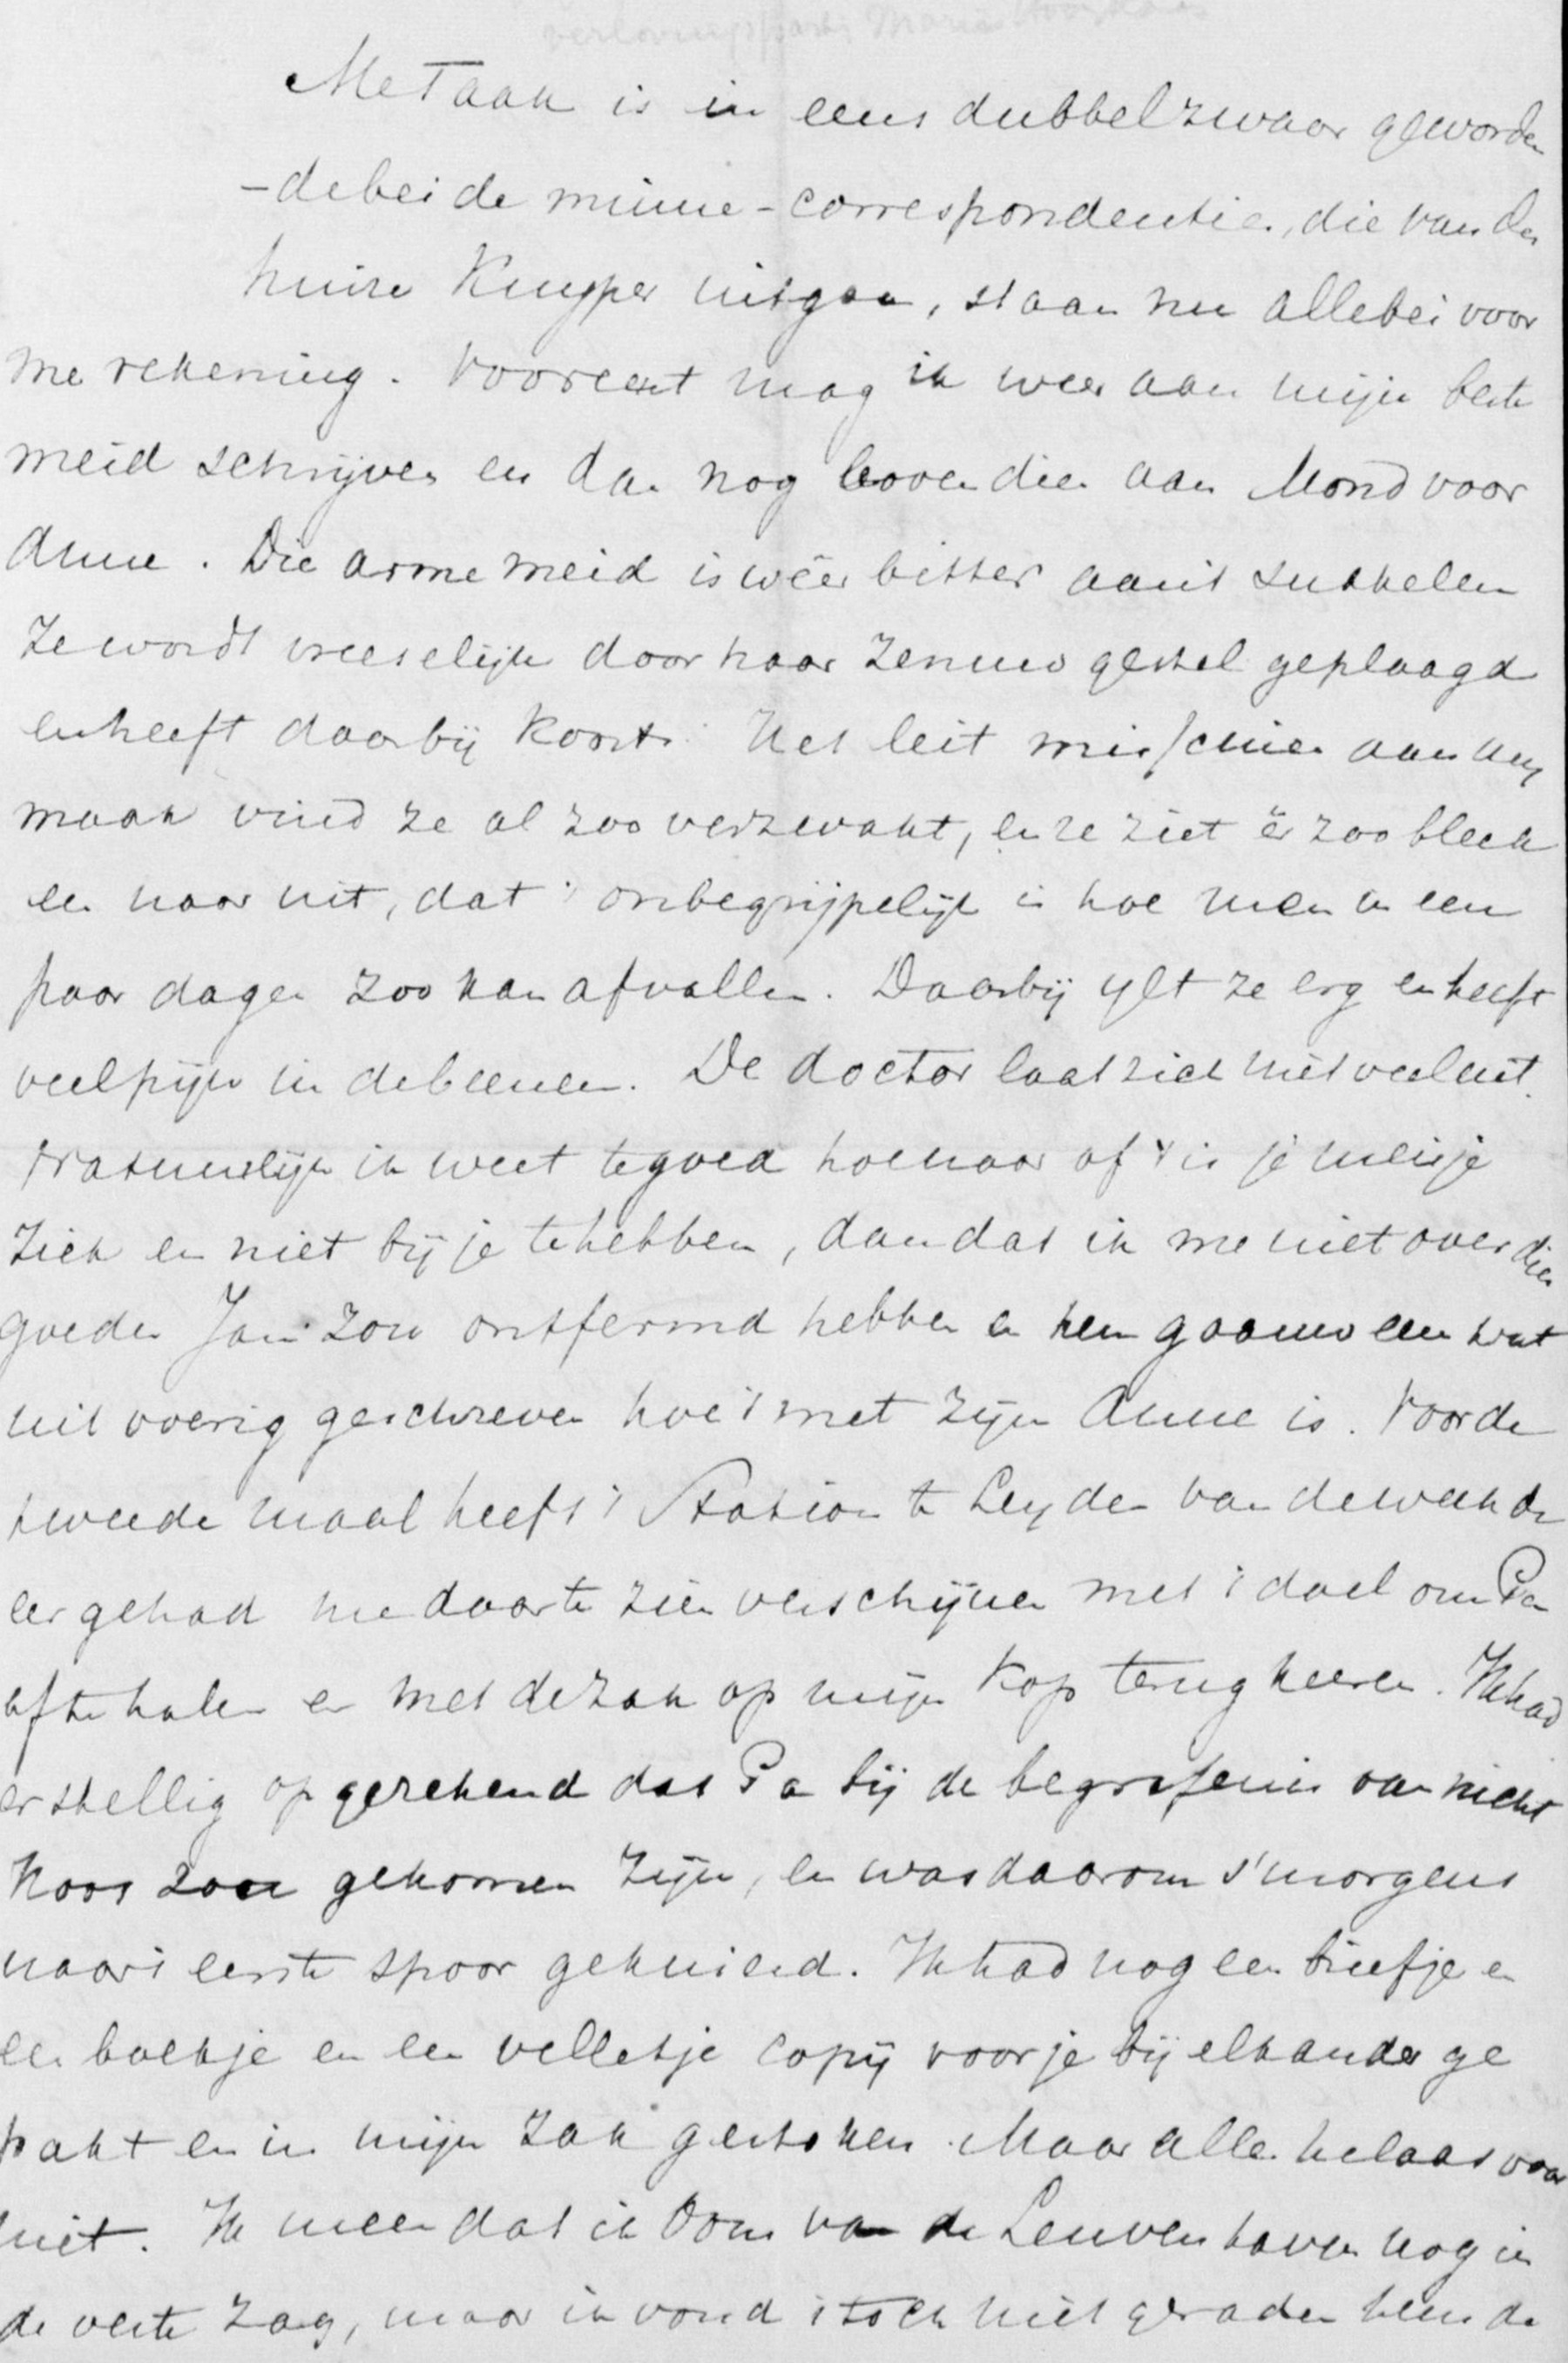 Me Taak is in eens dubbel zwaar geworden
- de beide minne-correspondentien, die van den
huize Kuyper uitgaan, staan nu allebei voor
me rekening. Vooreerst mag ik weer aan mijn beste
meid schrijven en dan nog bovendien aan Mond voor
Anne. Die arme meid is wéer bitter aan 't sukkelen
Ze wordt vreeselijk door haar zenuwgestel geplaagd
en heeft daarbij koorts. Het leit misschien aan mij
maar vind ze al zoo verzwakt, en ze ziet er zoo bleek
en naar uit, dat 't onbegrijpelijk is hoe men in een
paar dagen zoo kan afvallen. Daarbij ylt ze erg en heeft
veel pijn in de beenen. De doctor laat zich niet veel uit.
Natuurlijk ik weet te goed hoe naar of 't is je meisje
ziek en niet bij je te hebben, dan dat ik me niet over dien
goeden Jan zou ontfermd hebben en hem gaauw een wat
uitvoerig geschreven hoe 't met zijn Anne is. Voor de
tweede maal heeft 't Station te Leyden van de week de
eer gehad me daar te zien verschijnen met 't doel om Pa
af te halen en met de zak op mijn kop terugkeeren. Ik had
er stellig op gerekend dat Pa bij de begrafenis van nicht
Koos zou gekomen zijn, en was daarom s'morgens
naar 't eerste spoor gekuierd. Ik had nog een briefje en
een boekje en een velletje copij voor je bij elkander ge
pakt en in mijn zak gestoken. Maar alles helaas voor
niet. Ik meen dat ik Oom van de Leuvenhaven nog in
de verte zag, maar ik vond 't toch niet geraden hem de